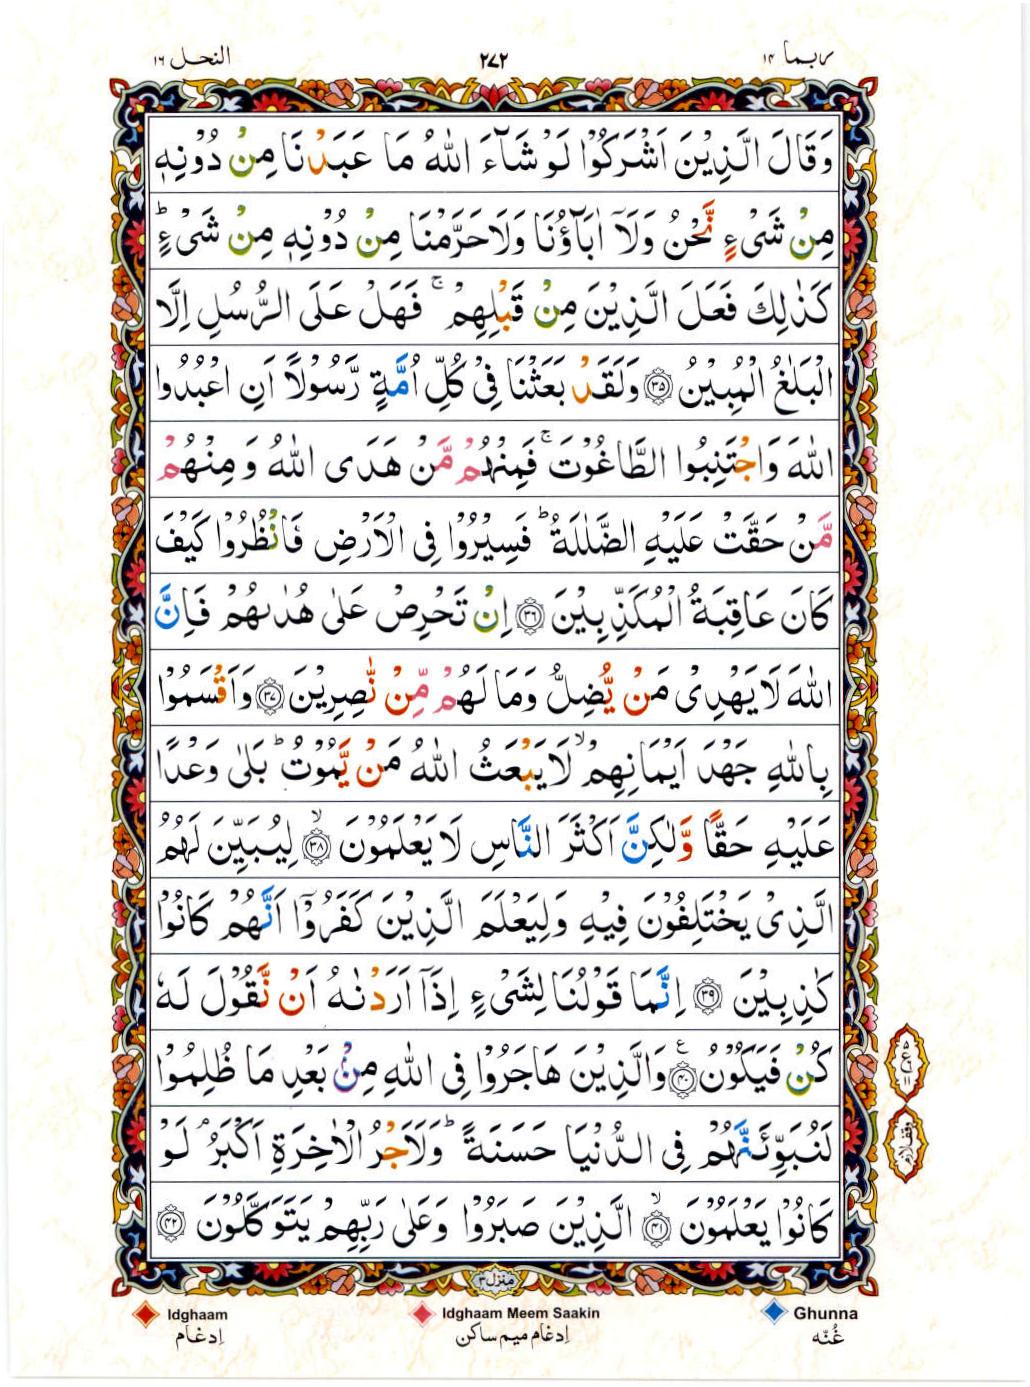 ربما ۱۴
۲۷۲
النحل ۱۶
وَقَالَ الَّذِيْنَ اَشْرَكُوْا لَوْ شَآءَ اللّٰهُ مَا عَبَدْنَا مِنْ دُوْنِهٖ
مِنْ شَىْءٍ نَّحْنُ وَلَاۤ اٰبَآؤُنَا وَلَا حَرَّمْنَا مِنْ دُوْنِهٖ مِنْ شَىْءٍ ؕ
كَذٰلِكَ فَعَلَ الَّذِيْنَ مِنْ قَبْلِهِمْ ۚ فَهَلْ عَلَى الرُّسُلِ اِلَّا
الْبَلٰغُ الْمُبِيْنُ ۳۵ وَلَقَدْ بَعَثْنَا فِىْ كُلِّ اُمَّةٍ رَّسُوْلًا اَنِ اعْبُدُوا
اللّٰهَ وَاجْتَنِبُوا الطَّاغُوْتَ ۚ فَمِنْهُمْ مَّنْ هَدَى اللّٰهُ وَمِنْهُمْ
مَّنْ حَقَّتْ عَلَيْهِ الضَّلٰلَةُ ؕ فَسِيْرُوْا فِى الْاَرْضِ فَانْظُرُوْا كَيْفَ
كَانَ عَاقِبَةُ الْمُكَذِّبِيْنَ ۳۶ اِنْ تَحْرِصْ عَلٰى هُدٰىهُمْ فَاِنَّ
اللّٰهَ لَا يَهْدِىْ مَنْ يُّضِلُّ وَمَا لَهُمْ مِّنْ نّٰصِرِيْنَ ۳۷ وَاَقْسَمُوْا
بِاللّٰهِ جَهْدَ اَيْمَانِهِمْ ۙ لَا يَبْعَثُ اللّٰهُ مَنْ يَّمُوْتُ ؕ بَلٰى وَعْدًا
عَلَيْهِ حَقًّا وَّلٰكِنَّ اَكْثَرَ النَّاسِ لَا يَعْلَمُوْنَ ۙ ۳۸ لِيُبَيِّنَ لَهُمُ
الَّذِىْ يَخْتَلِفُوْنَ فِيْهِ وَلِيَعْلَمَ الَّذِيْنَ كَفَرُوْۤا اَنَّهُمْ كَانُوْا
كٰذِبِيْنَ ۳۹ اِنَّمَا قَوْلُنَا لِشَىْءٍ اِذَاۤ اَرَدْنٰهُ اَنْ نَّقُوْلَ لَهٗ
كُنْ فَيَكُوْنُ ۴۰ ع وَالَّذِيْنَ هَاجَرُوْا فِى اللّٰهِ مِنْۢ بَعْدِ مَا ظُلِمُوْا
لَنُبَوِّئَنَّهُمْ فِى الدُّنْيَا حَسَنَةً ؕ وَلَاَجْرُ الْاٰخِرَةِ اَكْبَرُ ۘ لَوْ
كَانُوْا يَعْلَمُوْنَ ۙ ۴۱ الَّذِيْنَ صَبَرُوْا وَعَلٰى رَبِّهِمْ يَتَوَكَّلُوْنَ ۴۲
۵ ع ۱۱
وقف لازم
منزل ۳
Idghaam
Idghaam Meem Saakin
Ghunna
اِدغام
اِدغام میم ساکن
غُنّه